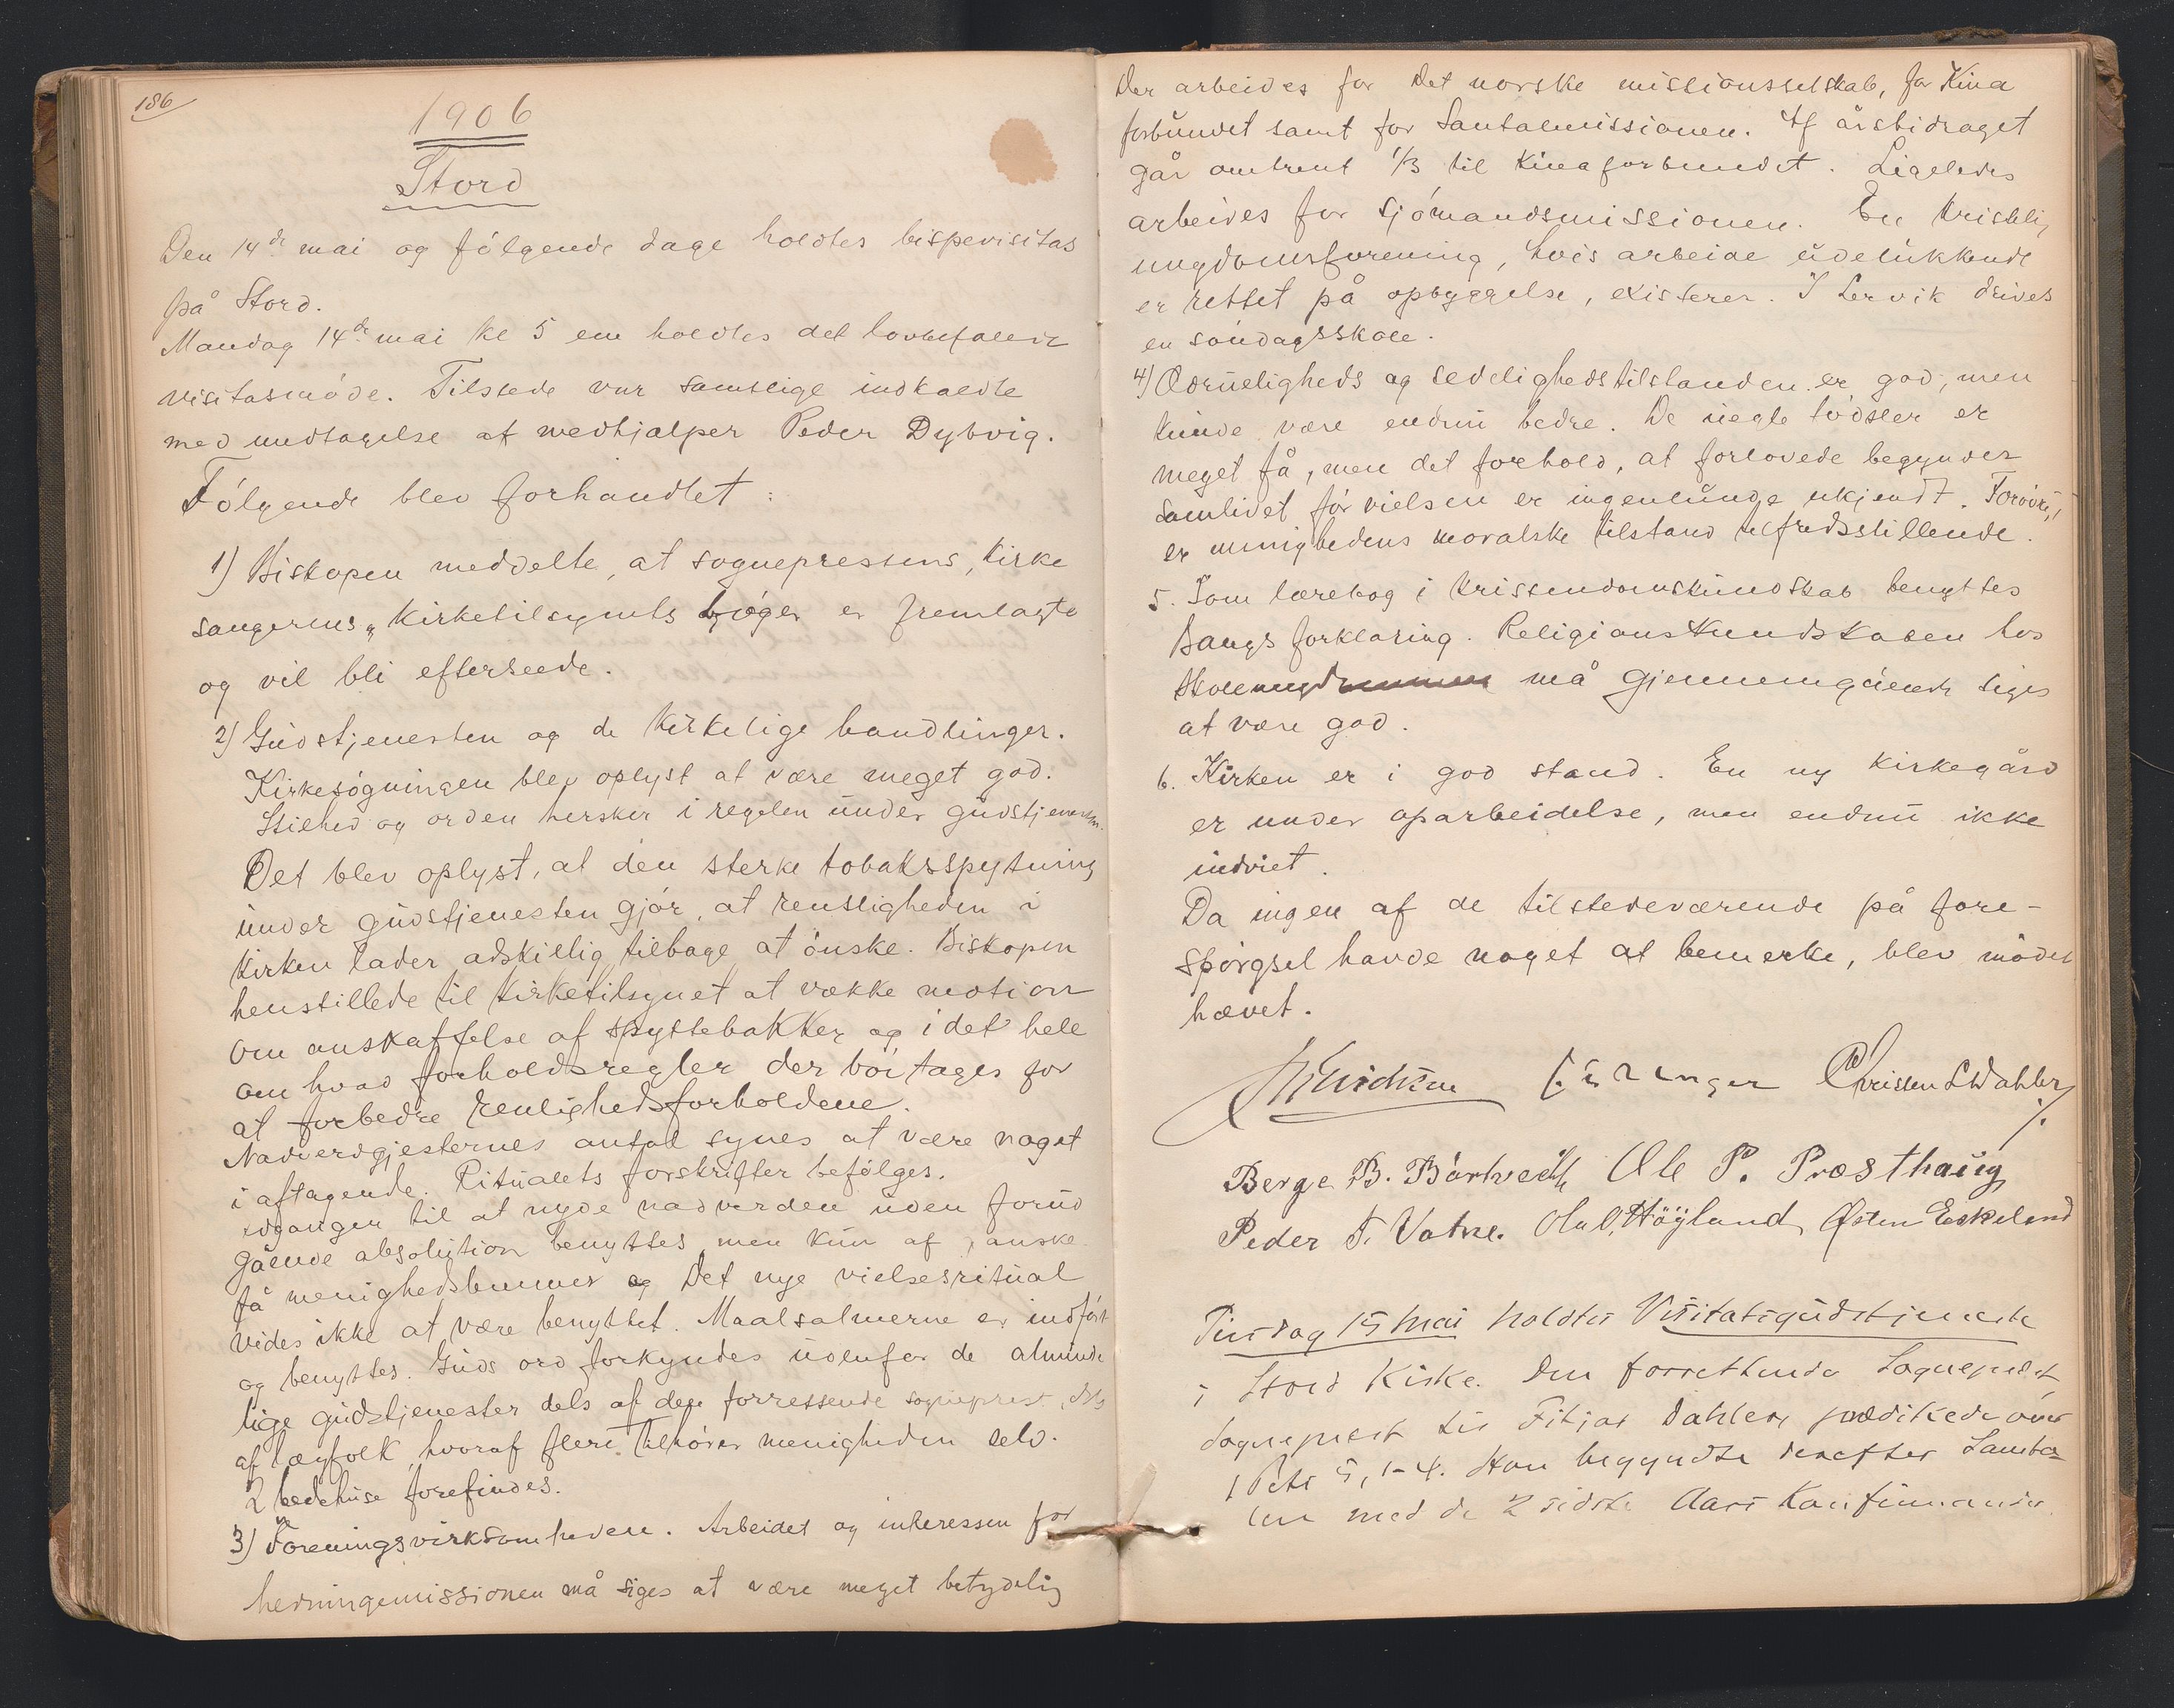 186
1906
Stord
Den 14de mai og følgende dage holdtes bispevisitas
på Stord.
Mandag 14de mai kl 5 em holdtes det lovbefalede
visitasmøde. Tilstede var samtlige indkaldte
med undtagelse af medhjælper Peder Dybvig.
Følgende blev forhandlet:
1) Biskopen meddelte, at sogneprestens, kirke
sangerens, kirketilsynets bøger er fremlagte
og vil bli efterseede.
2) Gudstjenesten og de kirkelige handlinger.
Kirkesøgningen blev oplyst at være meget god.
Stilhed og orden hersker i regelen under gudstjenesten.
Det blev oplyst, at den sterke tobaksspytning
under gudstjenesten gjør, at rensligheden i
kirken lader adskillig tilbage at ønske. Biskopen
henstillede til kirketilsynet at vække motion
om anskaffelse af spyttebakker og i det hele
om hvad forholdsregler der bør tages for
at forbedre renlighedsforholdene.
Nadverdgjesternes antal synes at være noget
i aftagende. Ritualets forskrifter befølges.
Adgangen til at nyde nadverden uden forud
gående absolution benyttes, men kun af ganske
få menighedslemmer og Det nye vielsesritual
vides ikke at være benyttet. Maalsalmerne er indført
og benyttes. Guds ord forkyndes udenfor de alminde
lige gudstjenester dels af den forrettende sogneprest, dels
af lægfolk, hvoraf flere tilhører menigheden selv.
2 bedehuse forefindes.
3) Foreningsvirksomheden. Arbeidet og interessen for
hedningemissionen må siges at være meget betydelig
Der arbeides for Det norske missionsselskab, for Kina
forbundet samt for Santalmissionen. Af årsbidraget
går omtrent 1/3 til Kinaforbundet. Ligeledes
arbeides for sjømandsmissionen. En kristelig
ungdomsforening, hvis arbeide udelukkende
er rettet på opbyggelse, existerer. I Lervik drives
en søndagsskole.
4) Ædrueligheds og sedelighedstilstanden er god, men
kunde være endnu bedre. De uegte fødsler er
meget få, men det forhold, at forlovede begynder
samlivet før vielsen er ingenlunde ukjendt. Forøvrig
er menighedens moralske tilstand tilfredsstillende.
5. Som lærebog i kristendomskundskab benyttes
Bangs forklaring. Religionskundskaben hos
skoleungdommen må gjennemgående siges
at være god.
6. Kirken er i god stand. En ny kirkegård
er under oparbeidelse, men endnu ikke
indviet.
Da ingen af de tilstedeværende på fore-
spørgsel havde noget at bemerke, blev mødet
hævet.
Christen S Dahler
Berge B. Bårtvedt Ole P. Præsthaug
Peder T. Vatne. Ola O. Høyland Østen Eskeland
Tirsdag 15 Mai holdtes Visitatsgudstjeneste
i Stord Kirke. Den forrettende Sogneprest
Sogneprest til Fitjar Dahler prædikede over
1 Petr 5, 1-4. Han begyndte derefter Samta-
len med de 2 sidste Aars Konfirmander